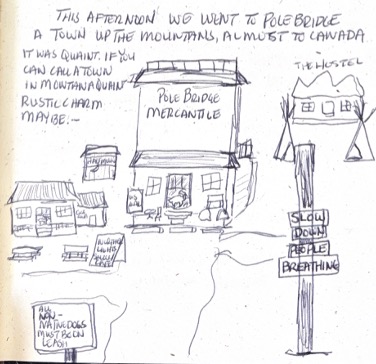 THIS AFTERNOON WE WENT TO POLEBRIDGE
A TOWN UP THE MOUNTAINS, ALMOST TO CANADA
IT WAS QUAINT. IF YOU
CAN CALL A TOWN
IN MONTANA QUAINT
RUSTIC CHARM
MAYBE.~
THE HOSTEL
POLE BRIDGE
MERCANTILE
SLOW
DOWN
PEOPLE
BREATHING
ALL
NON-
NATIVE DOGS
MUST BE ON
LEASH